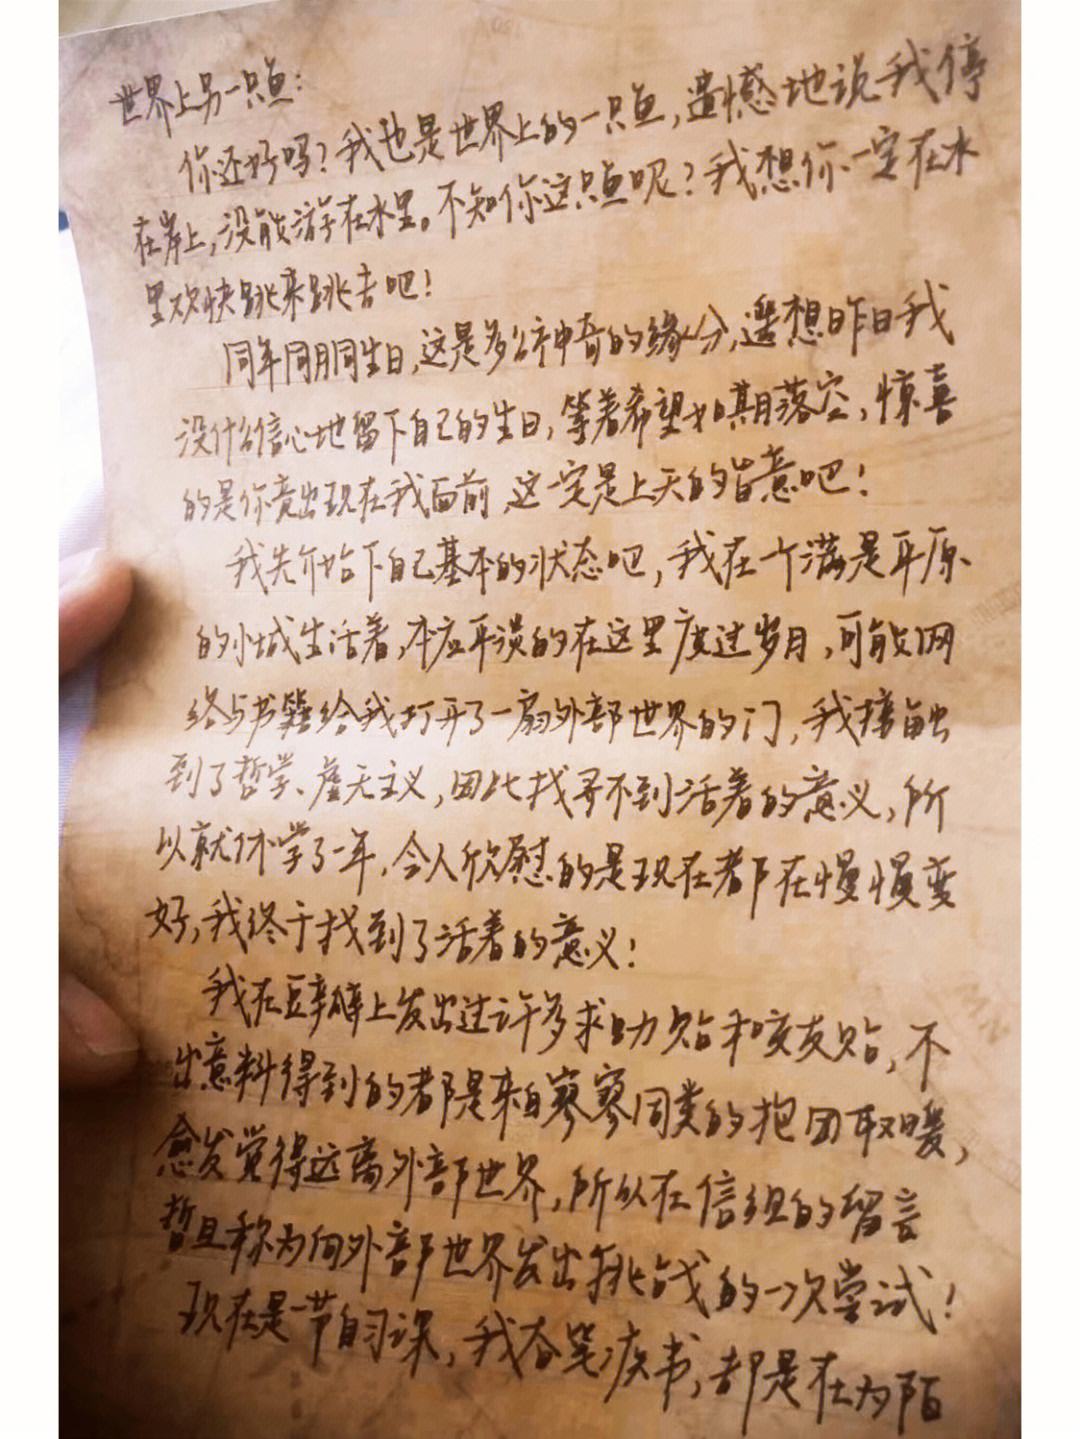 世界上另一只鱼:
你还好吗?我也是世界上的一只鱼,遗憾地说我停
在岸上,没能游在水里。不知你这只鱼呢?我想你一定在水
里欢快跳来跳去吧!
同年同月同生日,这是多么神奇的缘分,遥想昨日我
没什么信心地留下自己的生日,等着希望如期落空,惊喜
的是你竟出现在我面前,这一定是上天的旨意吧!
我先介绍下自己基本的状态吧,我在一个满是平原
的小城生活着,本应平淡的在这里度过岁月,可能网
络与书籍给我打开了一扇外部世界的门,我接触
到了哲学、虚无主义,因此找寻不到活着的意义,所
以就休学了一年,令人欣慰的是现在都在慢慢变
好,我终于找到了活着的意义!
我在豆瓣上发出过许多求助贴和交友贴,不
出意料得到的都是来自寥寥同类的抱团取暖,
愈发觉得远离外部世界,所以在信组的留言
暂且称为向外部世界发出挑战的一次尝试!
现在是一节自习课,我奋笔疾书,都是在为陌